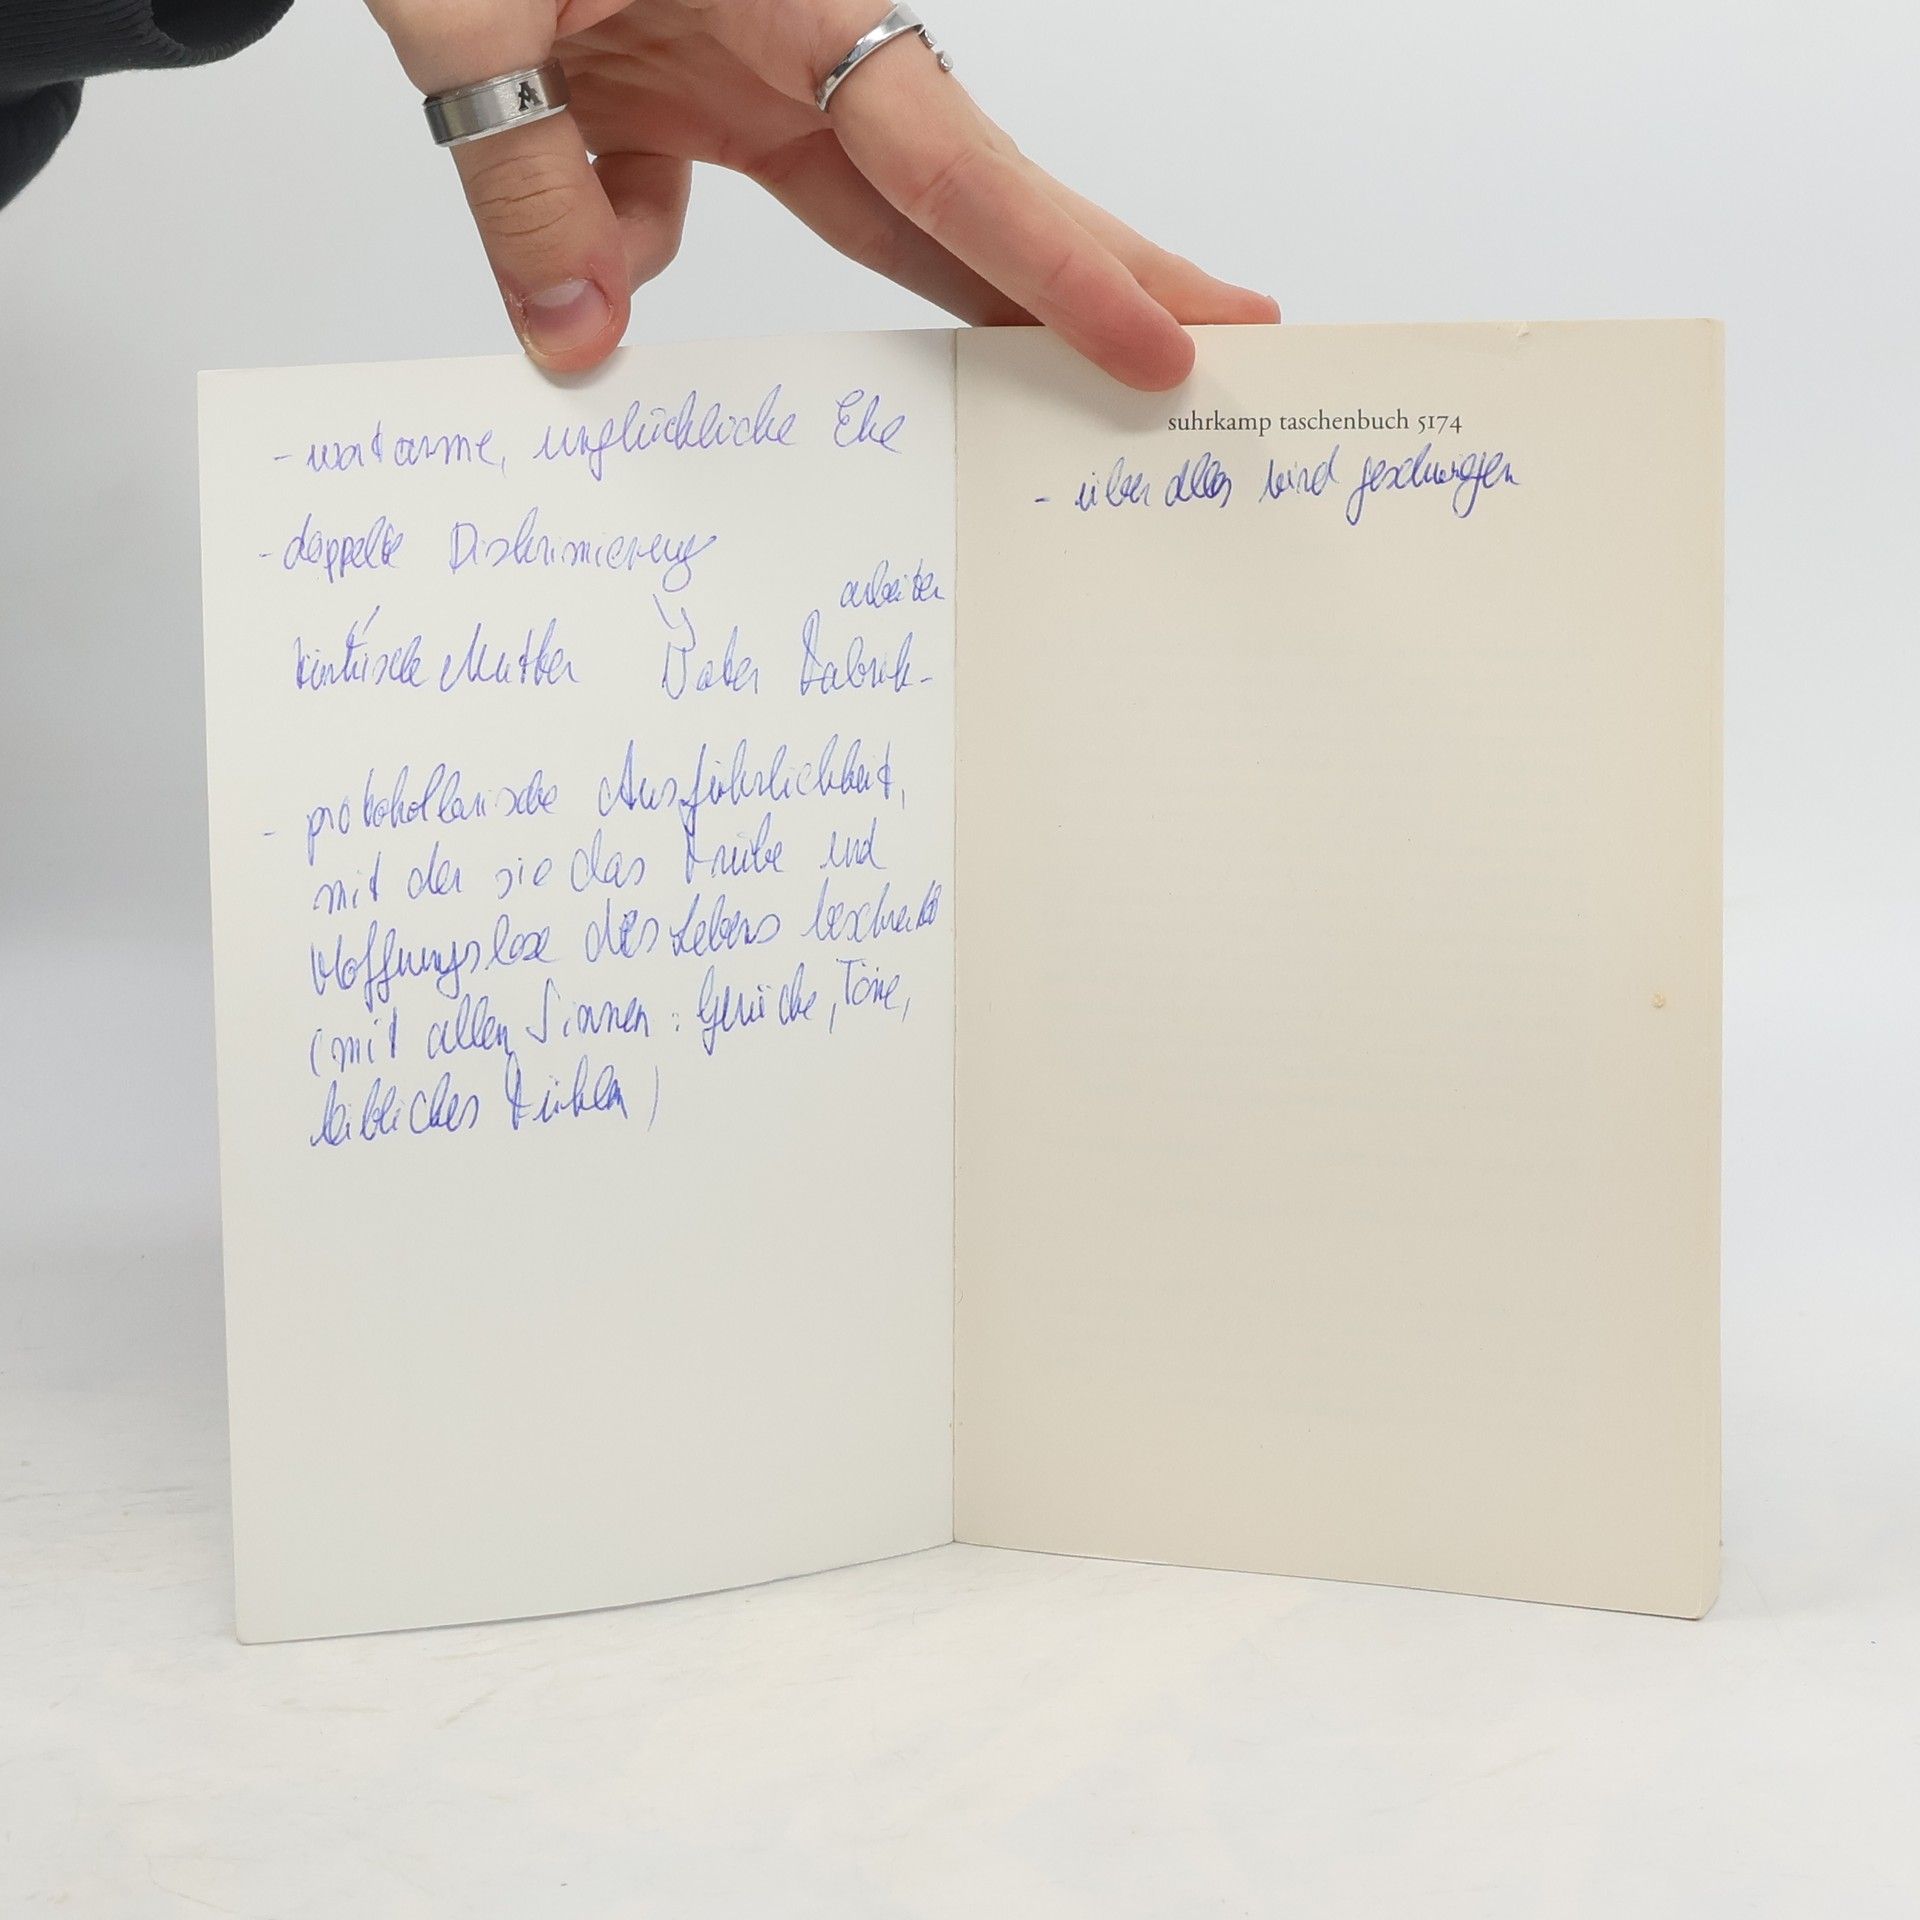 - wortarme, unglückliche Ehe
- doppelte Diskriminierung
arbeiter
türkische Mutter Vater Fabrik-
- protokollarische Ausführlichkeit,
mit der sie das Trübe und
Hoffnungslose des Lebens beschreibt
(mit allen Sinnen: Gerüche, Töne,
leibliches Fühlen)
suhrkamp taschenbuch 5174
- über alles wird geschwiegen
A